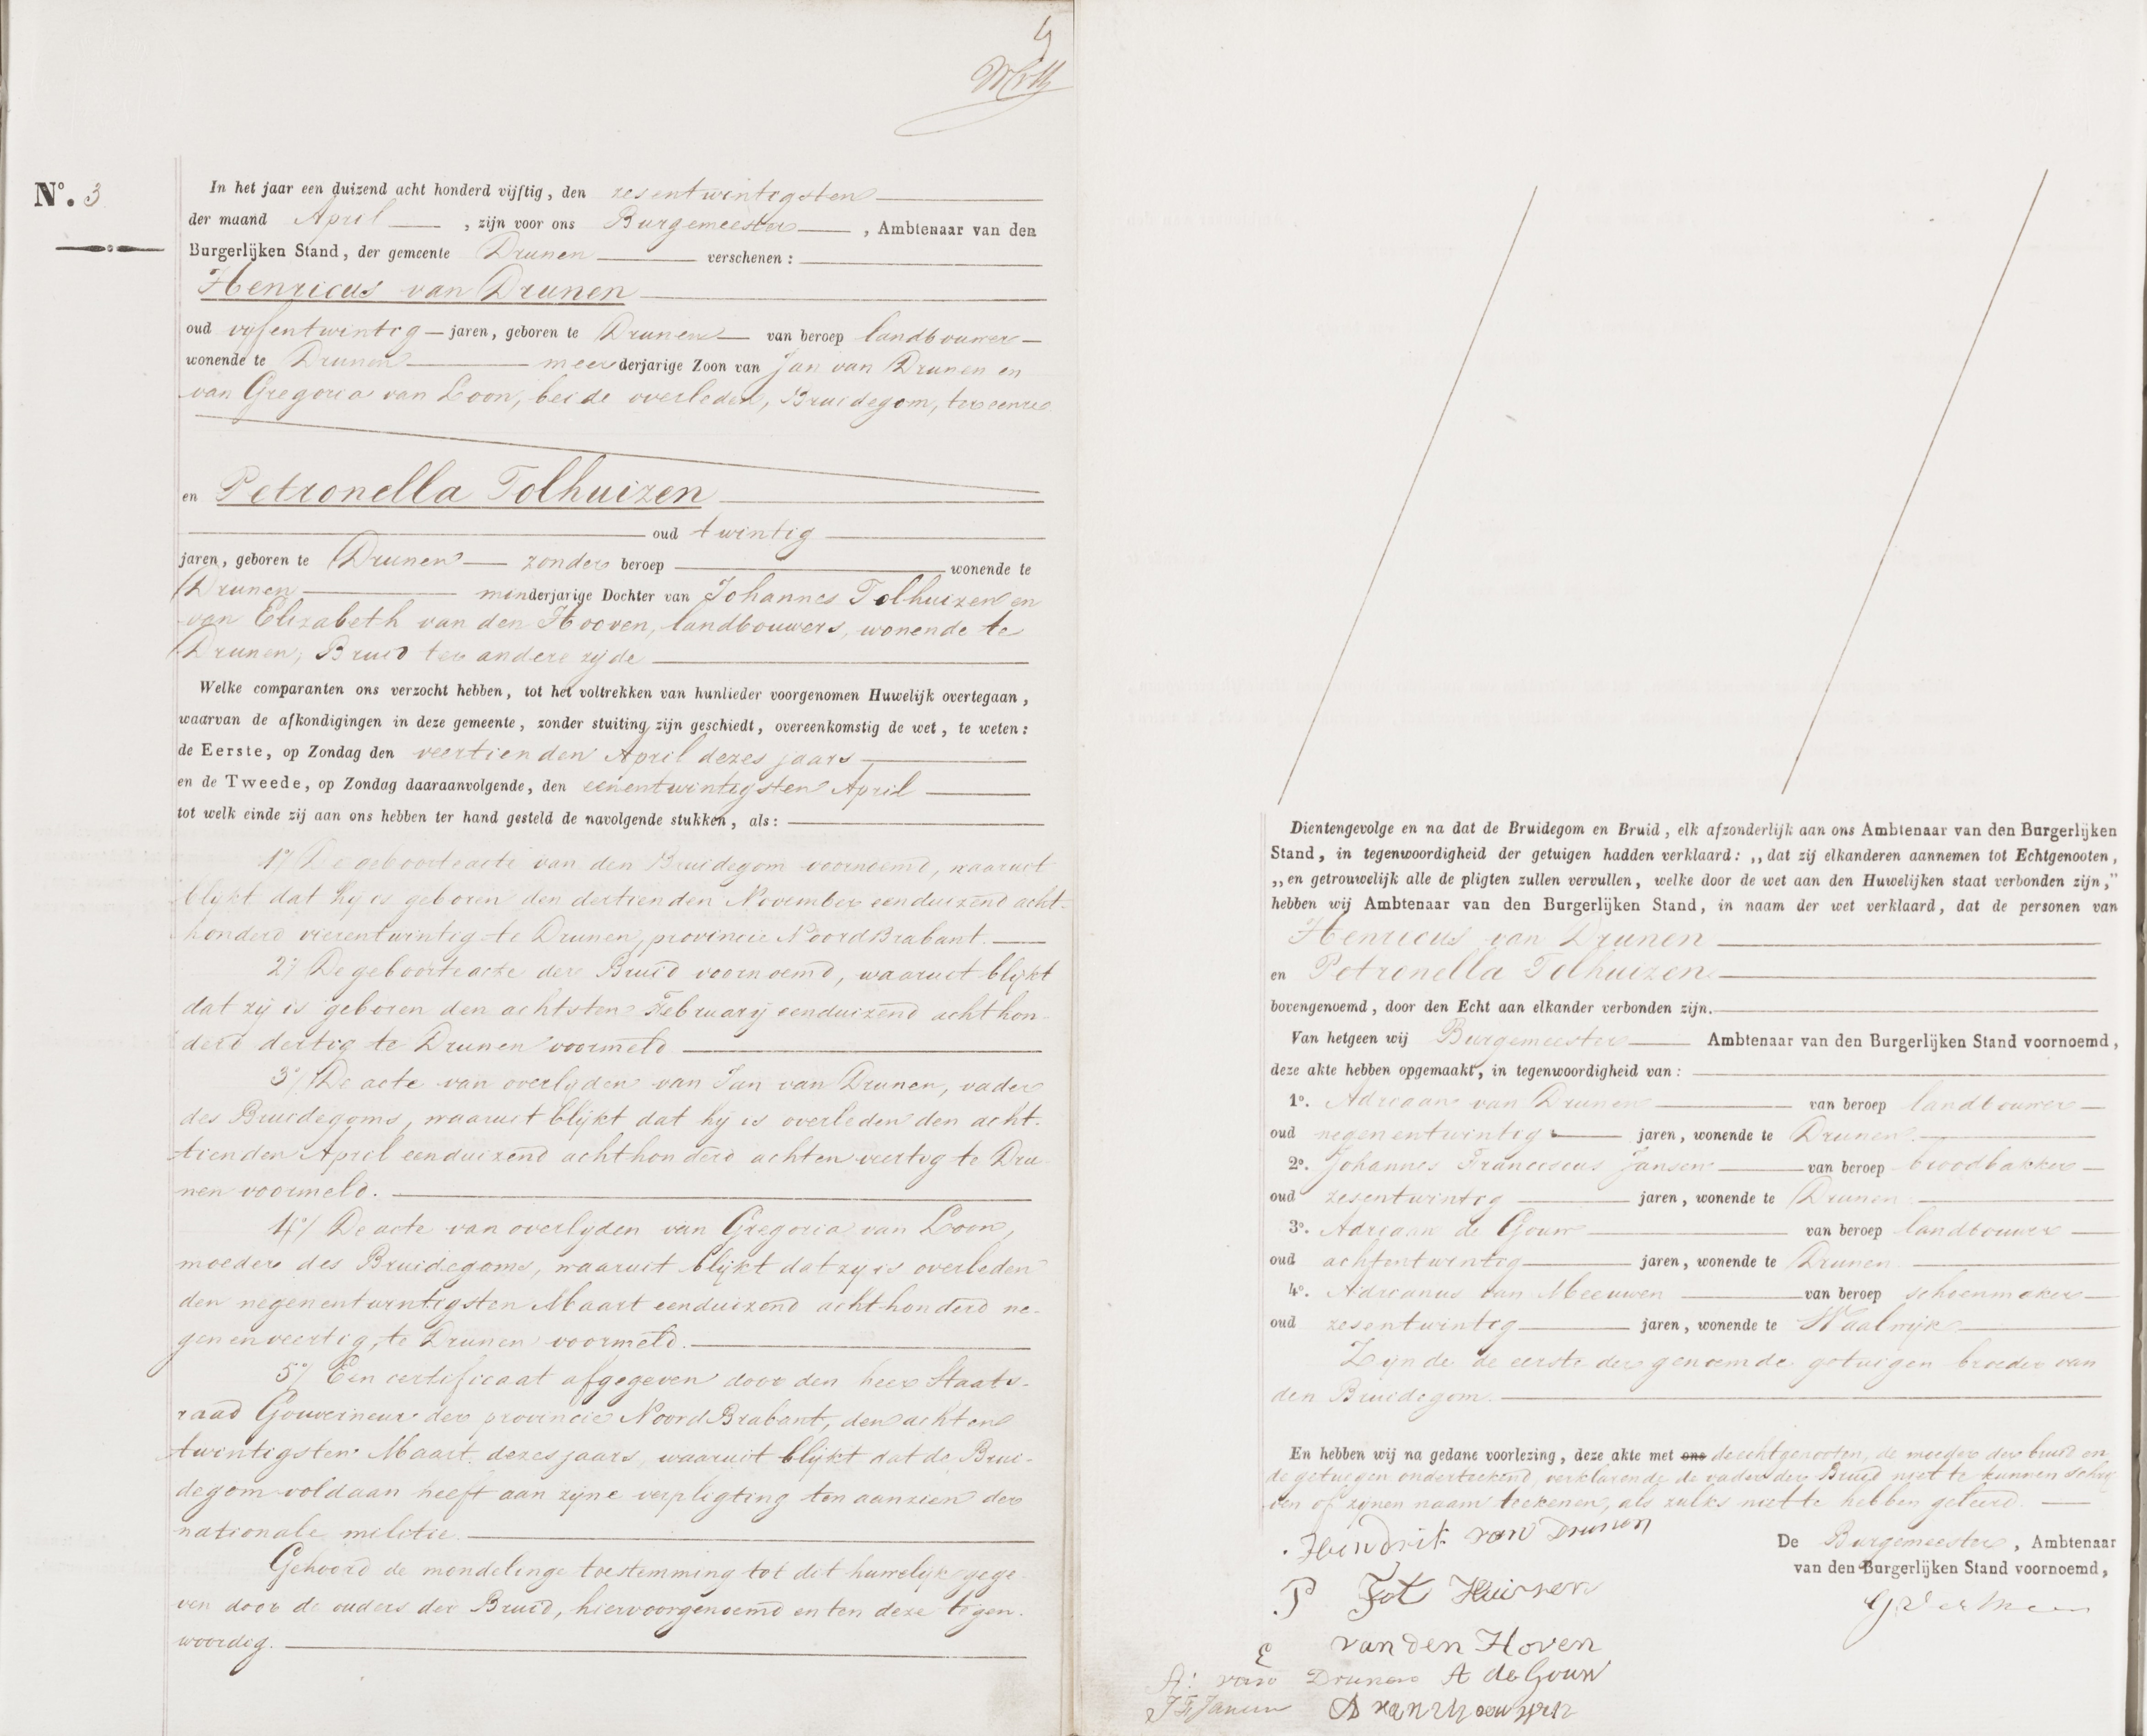 4
N°. 3
In het jaar een duizend acht honderd vijftig, den zesentwintigsten
der maand April, zijn voor ons Burgemeester, Ambtenaar van den
Burgerlijken Stand, der gemeente Drunen verschenen:
Henricus van Drunen
oud vijfentwintig jaren, geboren te Drunen van beroep landbouwer
wonende te Drunen meerderjarige Zoon van Jan van Drunen en
van Gregoria van Loon, beide overleden, Bruidegom, ter eenre
en Petronella Tolhuizen
oud twintig
jaren, geboren te Drunen zonder beroep wonende te
Drunen minderjarige Dochter van Johannes Tolhuizen en
van Elizabeth van den Hooven, landbouwers, wonende te
Drunen, Bruid ter andere zijde
Welke comparanten ons verzocht hebben, tot het voltrekken van hunlieder voorgenomen Huwelijk overtegaan,
waarvan de afkondigingen in deze gemeente, zonder stuiting zijn geschiedt, overeenkomstig de wet, te weten:
de Eerste, op Zondag den veertienden April dezes jaars
en de Tweede, op Zondag daaraanvolgende, den eenentwintigsten April
tot welk einde zij aan ons hebben ter hand gesteld de navolgende stukken, als:
1°/ De geboorteacte van den Bruidegom voornoemd, waaruit
blijkt dat hij is geboren den dertienden November eenduizend acht-
honderd vierentwintig te Drunen, provincie Noord Brabant.
2°/ De geboorteacte der Bruid voornoemd, waaruit blijkt
dat zij is geboren den achtsten February eenduizend achthon-
derd dertig te Drunen voormeld
3°/ De acte van overlyden van Jan van Drunen, vader
des Bruidegoms, waaruit blijkt dat hij is overleden den acht-
tienden April eenduizend achthonderd achtenveertig te Dru-
nen voormeld.
4°/ De acte van overlyden van Gregoria van Loon,
moeder des Bruidegoms, waaruit blijkt dat zij is overleden
den negenentwintigsten Maart eenduizend achthonderd ne-
genenveertig, te Drunen voormeld.
5°/ Een certificaat afgegeven door den heer Staats-
raad Gouverneur der provincie Noord Brabant, den achten
twintigsten Maart dezes jaars, waaruit blijkt dat de Brui-
degom voldaan heeft aan zijne verpligting ten aanzien der
nationale militie.
Gehoord de mondelinge toestemming tot dit huwelijk gege-
ven door de ouders der Bruid, hiervoorgenoemd en ten deze tegen-
woordig.
Dientengevolge en na dat de Bruidegom en Bruid, elk afzonderlijk aan ons Ambtenaar van den Burgerlijken
Stand, in tegenwoordigheid der getuigen hadden verklaard: „dat zij elkanderen aannemen tot Echtgenooten,
„en getrouwelijk alle de pligten zullen vervullen, welke door de wet aan den Huwelijken staat verbonden zijn,”
hebben wij Ambtenaar van den Burgerlijken Stand, in naam der wet verklaard, dat de personen van
Henricus van Drunen
en Petronella Tolhuizen
bovengenoemd, door den Echt aan elkander verbonden zijn.
Van hetgeen wij Burgemeester Ambtenaar van den Burgerlijken Stand voornoemd,
deze akte hebben opgemaakt, in tegenwoordigheid van:
1°. Adriaan van Drunen van beroep landbouwer
oud negenentwintig jaren, wonende te Drunen.
2°. Johannes Franciscus Jansen van beroep broodbakker
oud zesentwintig jaren, wonende te Drunen
3°. Adriaan de Gouw van beroep landbouwer
oud achtentwintig jaren, wonende te Drunen
4°. Adrianus van Meeuwen van beroep schoenmaker
oud zesentwintig jaren, wonende te Waalwijk
Zijnde de eerste der genoemde getuigen broeder van
den Bruidegom.
En hebben wij na gedane voorlezing, deze akte met ons de echtgenooten, de moeder der bruid en
de getuigen onderteekend, verklarende de vader der Bruid niet te kunnen schrij
ven of zijnen naam teekenen, als zulks niet te hebben geleerd.
Hendrik van Drunen
De Burgemeester, Ambtenaar
van den Burgerlijken Stand voornoemd,
P Tol Huisen
E van den Hoven
A: van Drunen A de Gouw
J F Jansen A van Meeuwen